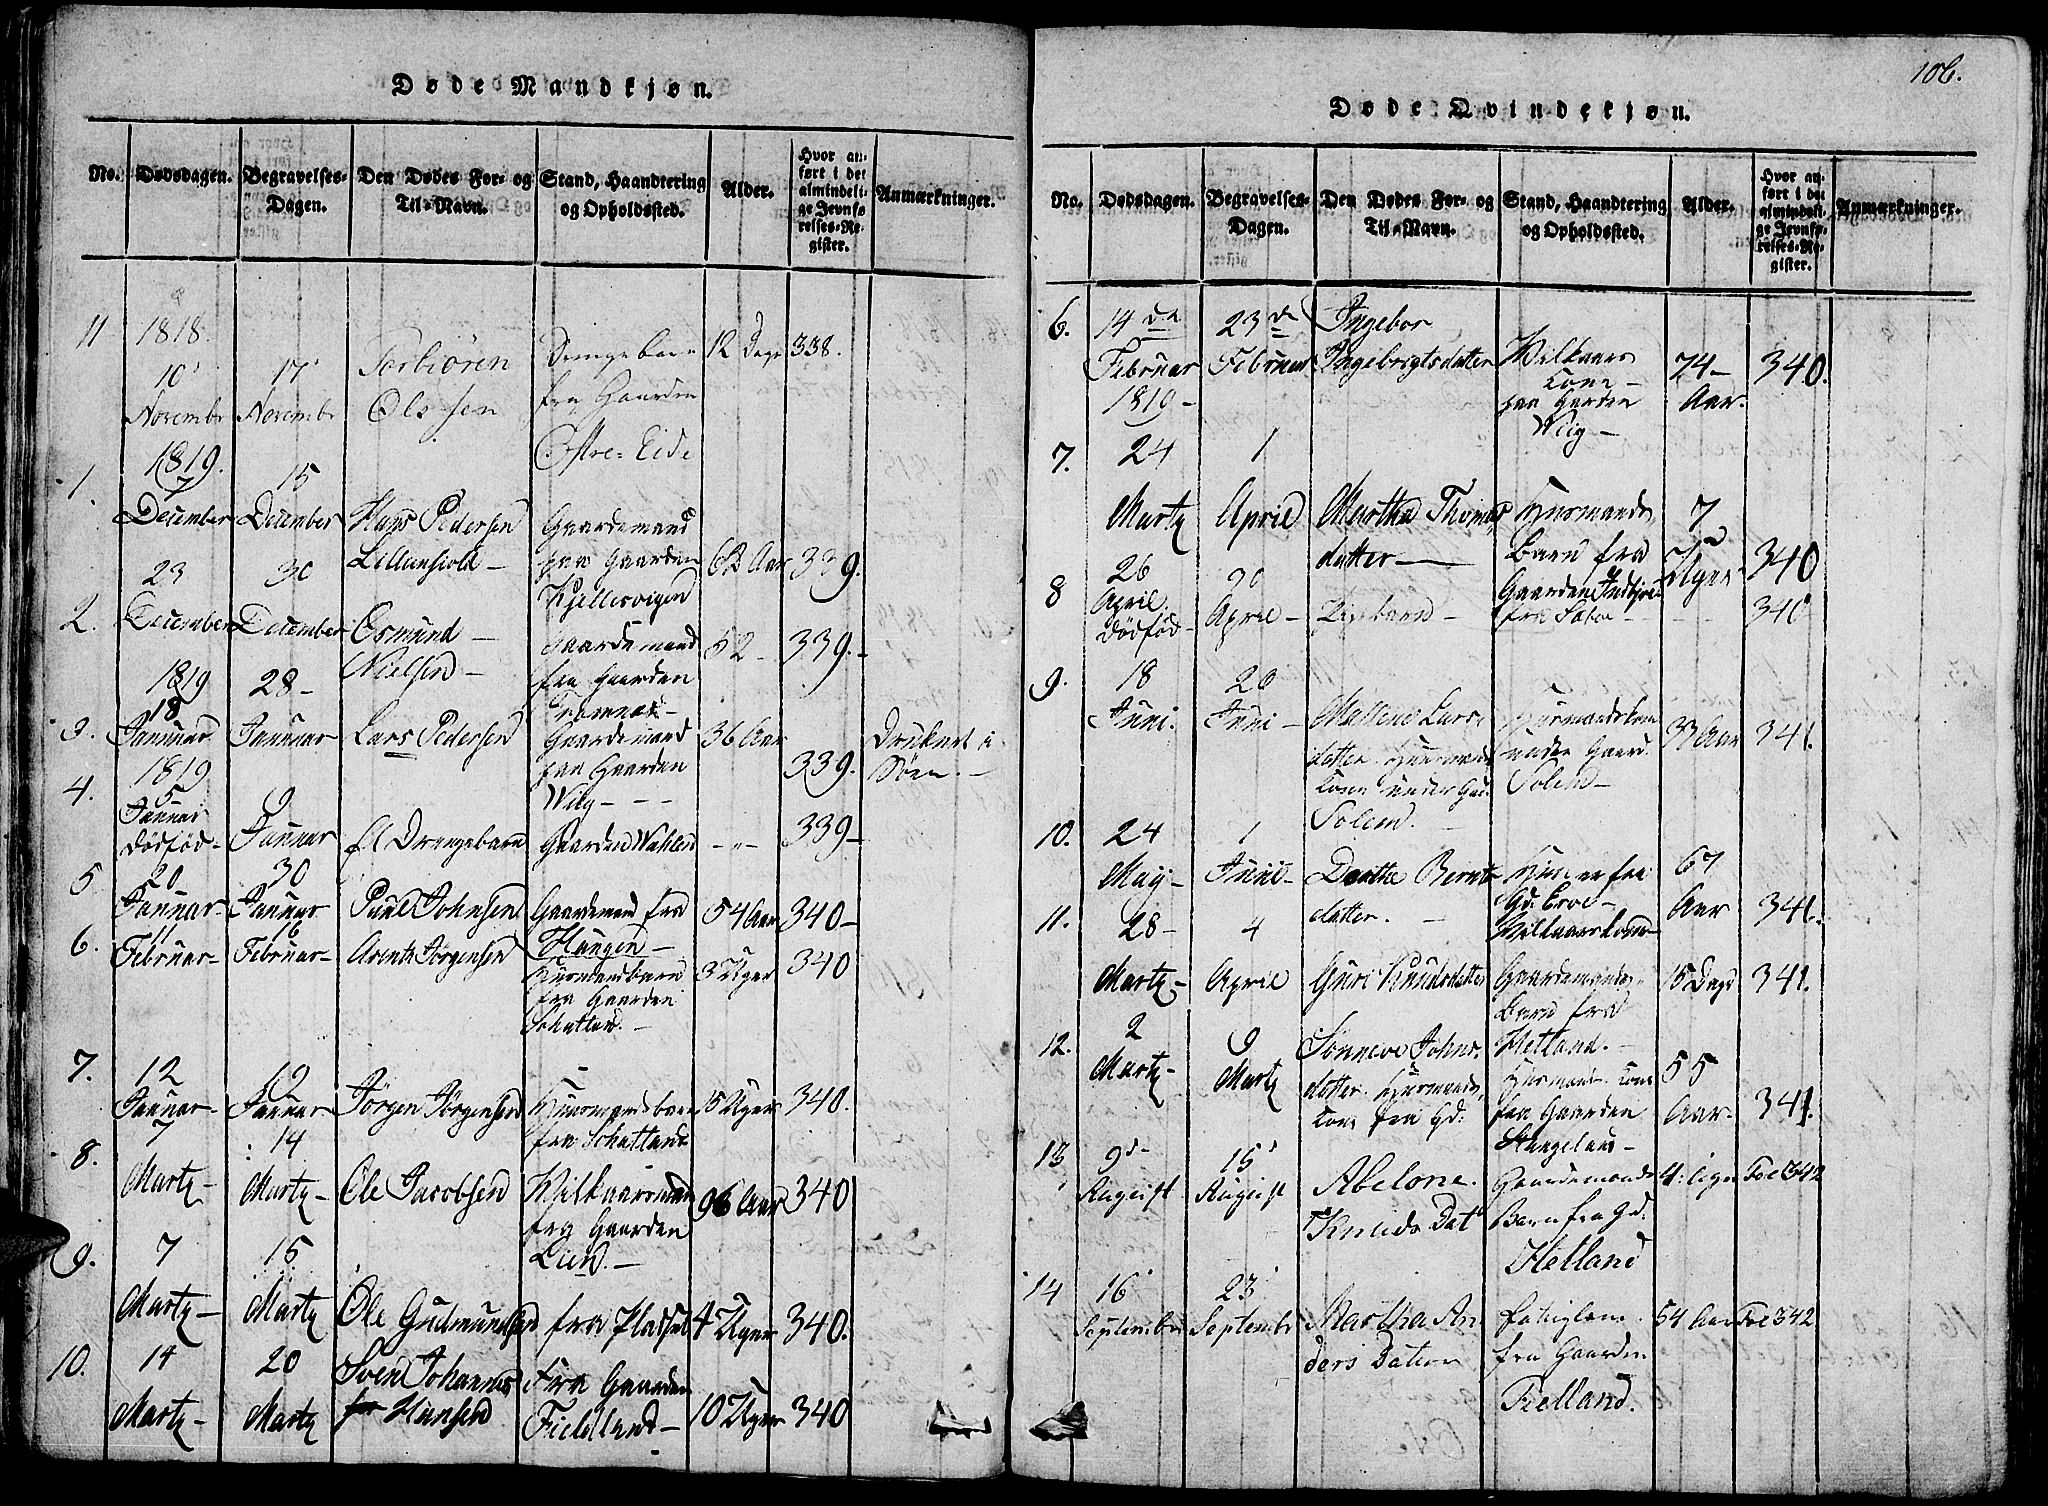 Døde Mandkjøn.
No. Dødsdagen. Begravelses-Dagen. Den Dødes For- og Til-Navn. Stand, Haandtering og Opholdssted. Alder. Hvor anført i det almindelige Jevnførelses-Register. Anmærkninger.
11 1818. 10 November 17 November Torbiören Olssen Drengebarn fra Gaarden Östre-Eide 12 Dage 338.
1. 1819. 7 December 15 December Hans Pedersen Gaardemand paa Gaarden Kjellesvigen 62 Aar 339.
2. 23 December 30 December Osmund Nielsen Gaardemand fra Gaarden 52 339.
3. 1819 18 Januar 28 Januar Lars Pedersen Gaardemand paa Gaarden Wiig 36 Aar 339. Druknet i Söen.
4. 1819 5 Januar dödföd 9 Januar Et Drengebarn Gaarden Wahlen 339
5 20 Januar 30 Januar Poul Johnsen Gaardemand fra Haugen 54 Aar 340
6. 11 Februar 16 Februar Arent Jörgensen Huusmandsbarn fra Gaarden 3 Uger 340
7. 12 Januar 19 Januar Jörgen Jörgensen Huusmandsbarn fra 5 Uger 340.
8. 7 Marty 14 Marty Ole Jacobsen Wilkaarsmand fra Gaarden Lien. 96 Aar 340
9. 7 Marty 15 Marty Ole Gudmundsen fra Pladsen 4 Uger 340.
10. 14 Marty 20 Marty Sven Johannes Hansen Fra Gaarden Fieldland 10 Uger 340
106.
Døde Qvindekjøn.
No. Dødsdagen. Begravelses-Dagen. Den Dødes For- og Til-Navn. Stand, Haandtering og Opholdssted. Alder. Hvor anført i det almindelige Jevnførelses-Register. Anmærkninger.
6. 14de Februar 1819 23de Februar Ingebor Ingebrigtsdatter Wilkaars Kone paa Garden Wiig 74 Aar. 340.
7. 24 Marty 1 April Martha Thomasdatter Huusmands Barn fra Gaarden 7 Uger 340
8 26 April. Dödföd 30 April fra 340
9. 18 Juni. 26 Juni Larsdatter Huusmands Kone under Solem. Huusmandskone under Gaard. Solem 33 Aar 341.
10. 24 May 1 Junii Dorthe Berntsdatter. fra Gd. Wilkaarskone 67 Aar 341.
11. 28 Marty 4 April Guri Knudsdatter Gaardemands Barn fra Hetland. 15 Dage 341.
12. 2 Marty 9 Marty Sönneve Johnsdatter. Huusmands Kone fra Gd: Huusmands Kone fra Gaarden Stangeland 55 Aar 341.
13 9 August 15 August Abelone. Knuds Dat Gaardemands Barn fra Gd: Hetland 4 Ugr Fol 342
14 16 September 23 September Martha Anders Datter fra Gaarden Fielland. 54 Aar Fol 342